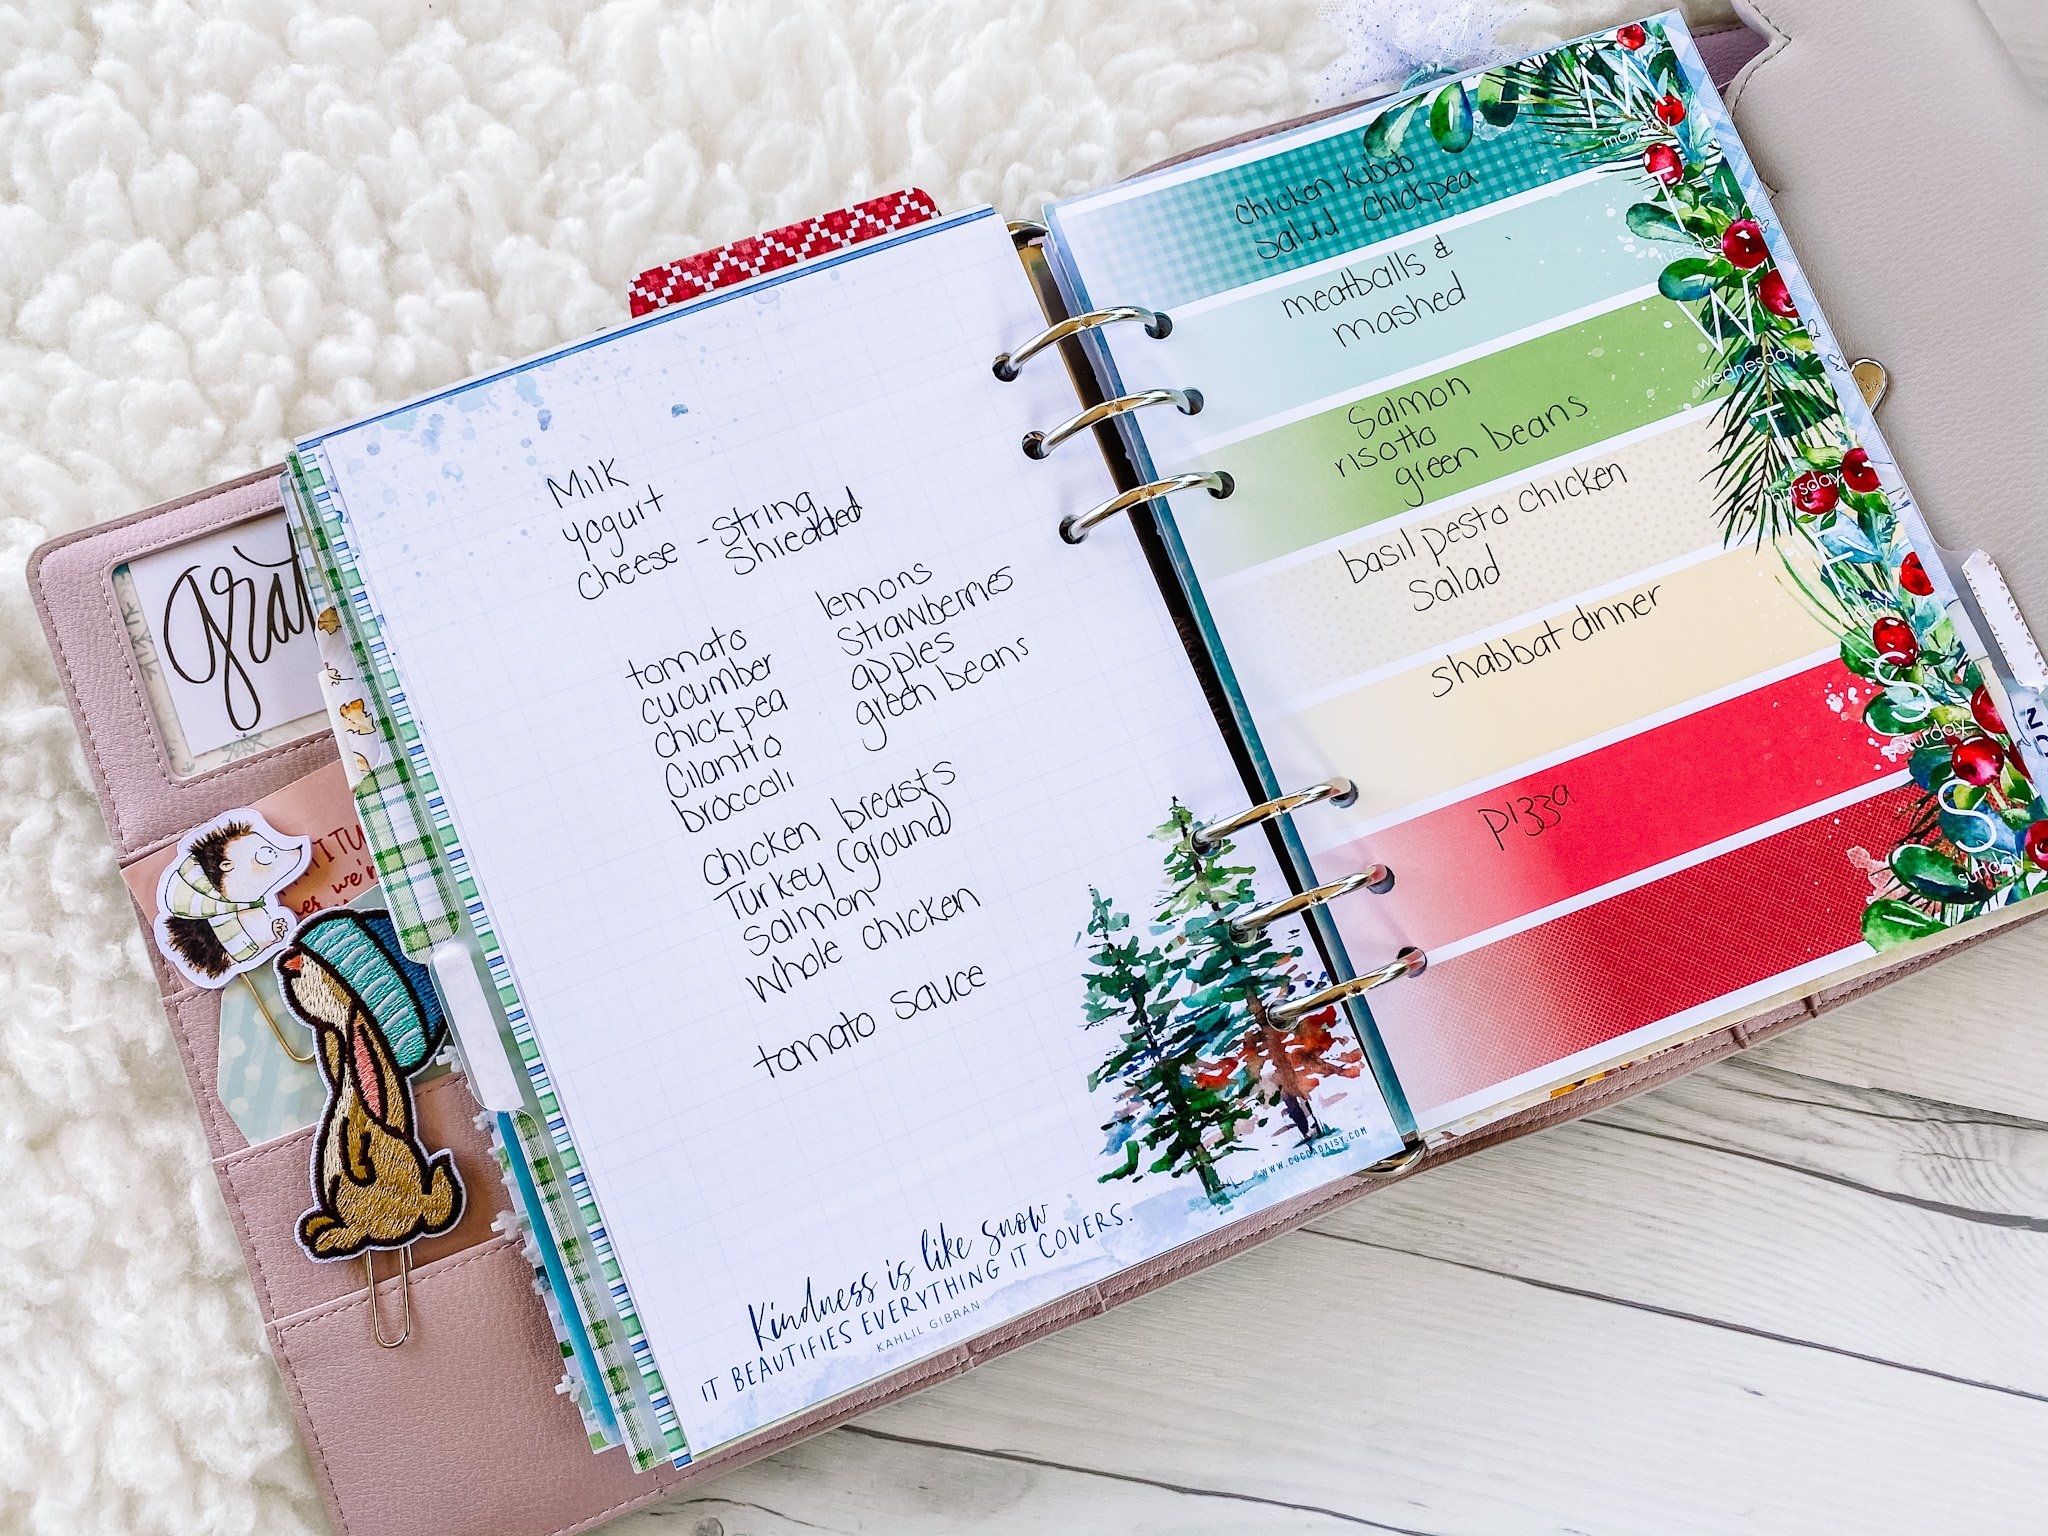 Milk
yogurt
cheese - string
shredded
tomato
cucumber
chickpea
Cilantro
broccoli
lemons
strawberries
apples
green beans
chicken breasts
Turkey (ground)
salmon
Whole chicken
tomato sauce
Kindness is like snow
IT BEAUTIFIES EVERYTHING IT COVERS.
KAHLIL GIBRAN
WWW.COCOADAISY.COM
M
monday
chicken kabob
salad chickpea
T
tuesday
meatballs &
mashed
W
wednesday
Salmon
risotto
green beans
T
thursday
basil pesto chicken
Salad
F
shabbat dinner
S
saturday
pizza
S
sunday